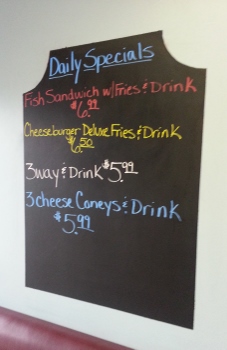 Daily Specials
Fish Sandwich w/Fries & Drink
$6.99
Cheeseburger Deluxe Fries & Drink
$6.50
3way & Drink $5.99
3 cheese Coneys & Drink
$5.99